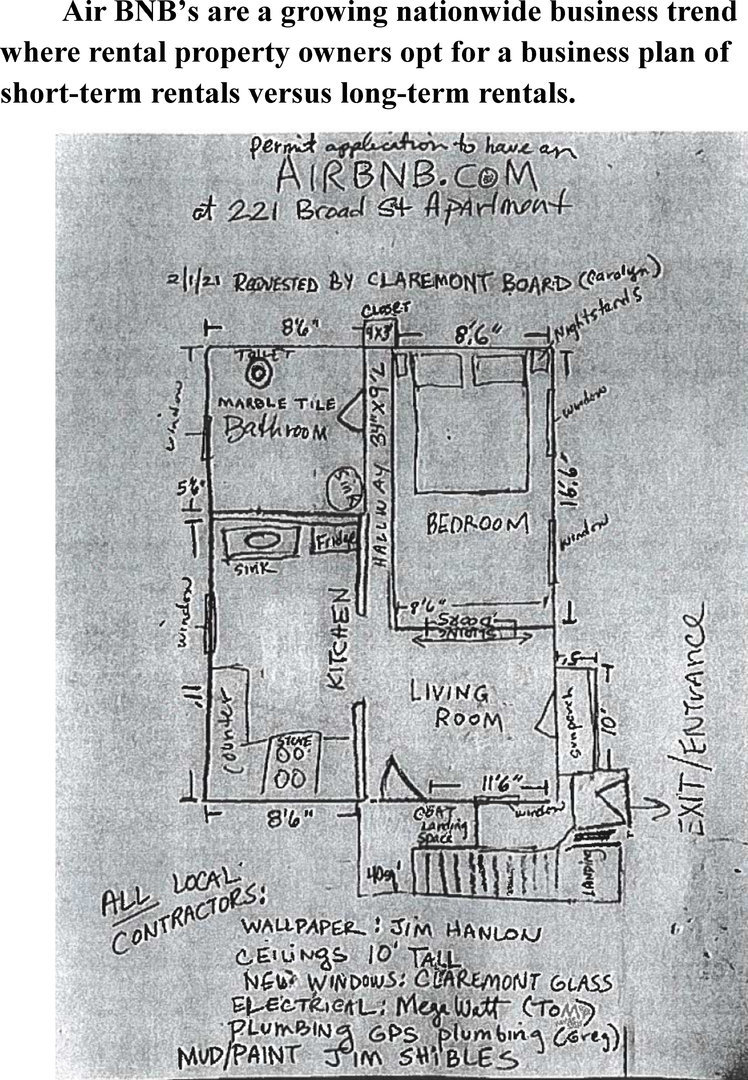 Air BNB’s are a growing nationwide business trend
where rental property owners opt for a business plan of
short-term rentals versus long-term rentals.
permit application to have an
AIRBNB.COM
at 221 Broad St Apartment
2/1/21 REQUESTED BY CLAREMONT BOARD (Carolyn)
CLOSET
8'6"
4x3'
8'6"
Nightstands
TOILET
MARBLE TILE
Bathroom
window
HALLWAY 34" X 9'L
window
5'6"
16'6"
BEDROOM
window
SINK
Fridge
window
KITCHEN
8'6"
SLIDING
DOORS
LIVING
ROOM
5'
sunporch
10'
EXIT/ENTRANCE
11'
Counter
STOVE
11'6"
8'6"
COAT
Landing
Space
window
LANDING
ALL LOCAL
CONTRACTORS:
WALLPAPER: JIM HANLON
CEILINGS 10' TALL
NEW WINDOWS: CLAREMONT GLASS
ELECTRICAL: MegaWatt (TOM)
PLUMBING GPS plumbing (Greg)
MUD/PAINT JIM SHIBLES